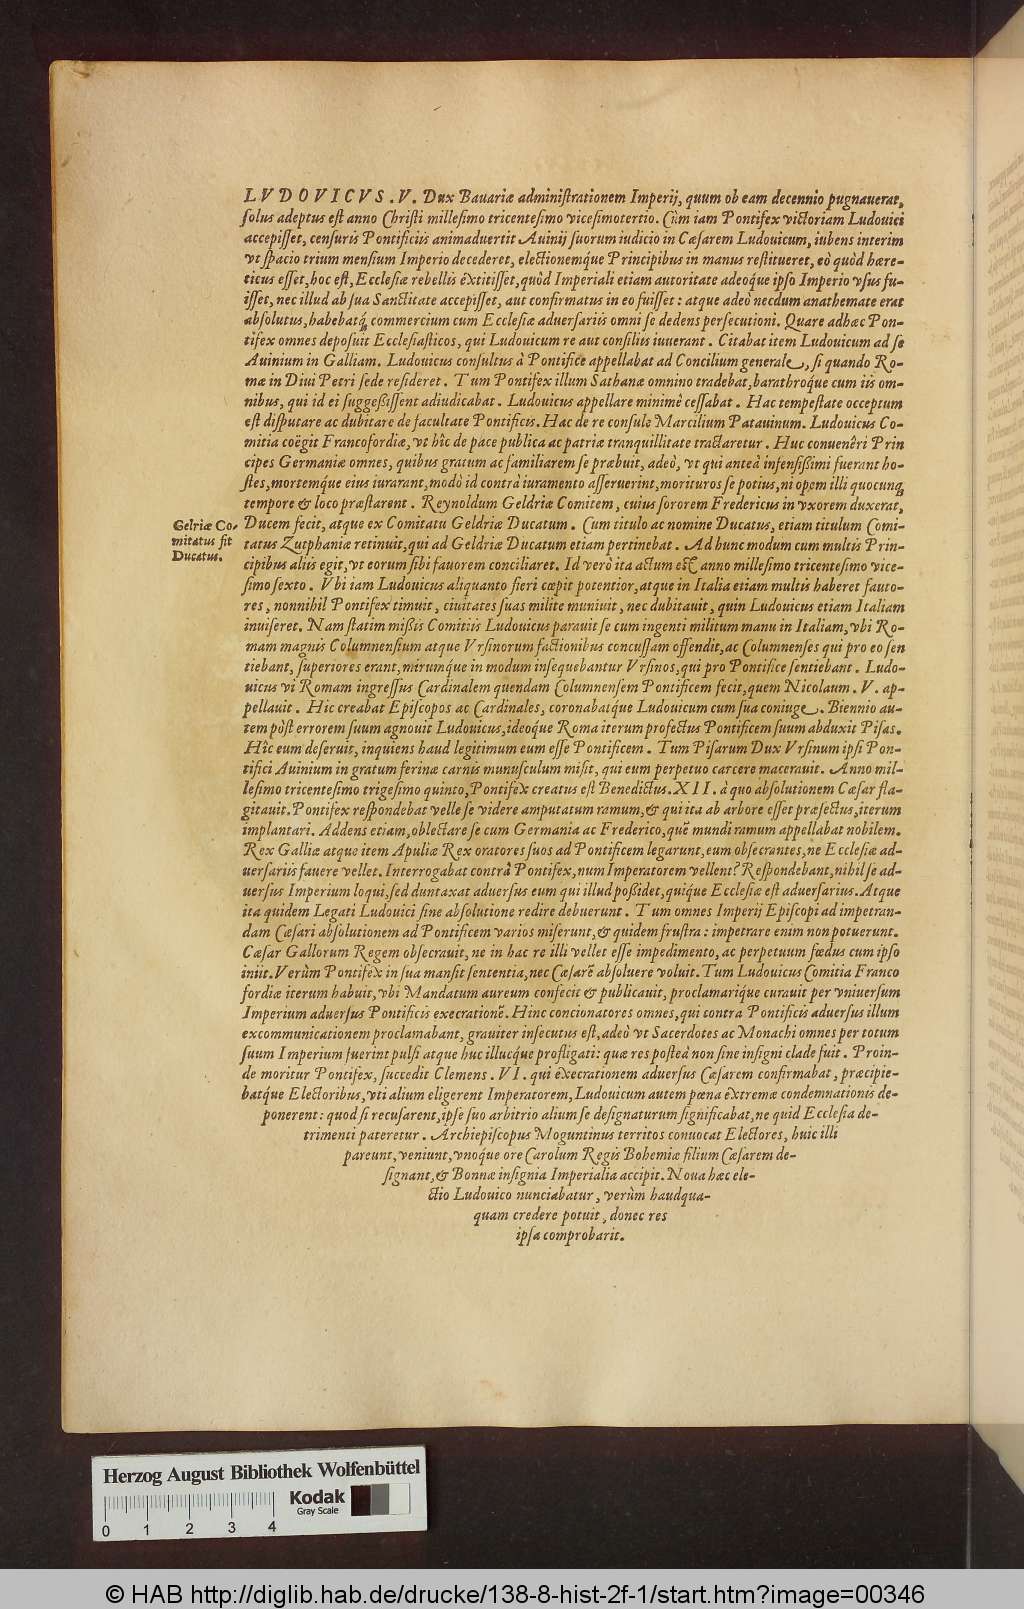 LVDOVICVS.V. Dux Bauariæ adminiſtrationem Imperij, quum ob eam decennio pugnauerat,
ſolus adeptus eſt anno Chriſti milleſimo tricenteſimo viceſimotertio. Cùm iam Pontifex victoriam Ludouici
accepiſſet, cenſuris Pontificiis animaduertit Auinij ſuorum iudicio in Cæſarem Ludouicum, iubens interim
vt ſpacio trium menſium Imperio decederet, electionemque Principibus in manus reſtitueret, eò quòd hære-
ticus eſſet, hoc eſt, Eccleſiæ rebellis éxtitiſſet, quòd Imperiali etiam autoritate adeoque ipſo Imperio vſus fu-
iſſet, nec illud ab ſua Sanctitate accepiſſet, aut confirmatus in eo fuiſſet: atque adeò necdum anathemate erat
abſolutus, habebatq́; commercium cum Eccleſiæ aduerſariis omni ſe dedens perſecutioni. Quare adhæc Pon-
tifex omnes depoſuit Eccleſiaſticos, qui Ludouicum re aut conſiliis iuuerant. Citabat item Ludouicum ad ſe
Auinium in Galliam. Ludouicus conſultus à Pontifice appellabat ad Concilium generale, ſi quando Ro-
mæ in Diui Petri ſede reſideret. Tum Pontifex illum Sathanæ omnino tradebat, barathroq́ue cum iis om-
nibus, qui id ei ſuggeßiſſent adiudicabat. Ludouicus appellare minimè ceſſabat. Hac tempeſtate occeptum
eſt diſputare ac dubitare de facultate Pontificis. Hac de re conſule Marcilium Patauinum. Ludouicus Co-
mitia coëgit Francofordiæ, vt hîc de pace publica ac patriæ tranquillitate tractaretur. Huc conuenêri Prin
cipes Germaniæ omnes, quibus gratum ac familiarem ſe præbuit, adeò, vt qui anteà infenſißimi fuerant ho-
ſtes, mortemq́ue eius iurarant, modò id contrà iuramento aſſeruerint, morituros ſe potius, ni opem illi quocunq;
tempore & loco præſtarent. Reynoldum Geldriæ Comitem, cuius ſororem Fredericus in vxorem duxerat,
Gelriæ Co-
mitatus fit
Ducatus.
Ducem fecit, atque ex Comitatu Geldriæ Ducatum. Cum titulo ac nomine Ducatus, etiam titulum Comi-
tatus Zutphaniæ retinuit, qui ad Geldriæ Ducatum etiam pertinebat. Ad hunc modum cum multis Prin-
cipibus aliis egit, vt eorum ſibi fauorem conciliaret. Id verò ita actum eſt anno milleſimo tricenteſimo vice-
ſimo ſexto. Vbi iam Ludouicus aliquanto fieri cœpit potentior, atque in Italia etiam multis haberet fauto-
res, nonnihil Pontifex timuit, ciuitates ſuas milite muniuit, nec dubitauit, quin Ludouicus etiam Italiam
inuiſeret. Nam ſtatim mißis Comitiis Ludouicus parauit ſe cum ingenti militum manu in Italiam, vbi Ro-
mam magnis Columnenſium atque Vrſinorum factionibus concuſſam offendit, ac Columnenſes qui pro eo ſen
tiebant, ſuperiores erant, mirumq́ue in modum inſequebantur Vrſinos, qui pro Pontifice ſentiebant. Ludo-
uicus vi Romam ingreſſus Cardinalem quendam Columnenſem Pontificem fecit, quem Nicolaum. V. ap-
pellauit. Hic creabat Epiſcopos ac Cardinales, coronabatque Ludouicum cum ſua coniuge. Biennio au-
tem pòſt errorem ſuum agnouit Ludouicus, ideoq́ue Roma iterum profectus Pontificem ſuum abduxit Piſas.
Hîc eum deſeruit, inquiens haud legitimum eum eſſe Pontificem. Tum Piſarum Dux Vrſinum ipſi Pon-
tifici Auinium in gratum ferinæ carnis munuſculum miſit, qui eum perpetuo carcere macerauit. Anno mil-
leſimo tricenteſimo trigeſimo quinto, Pontifex creatus eſt Benedictus. XII. à quo abſolutionem Cæſar fla-
gitauit. Pontifex reſpondebat velle ſe videre amputatum ramum, & qui ita ab arbore eſſet præſectus, iterum
implantari. Addens etiam, oblectare ſe cum Germania ac Frederico, quē mundi ramum appellabat nobilem.
Rex Galliæ atque item Apuliæ Rex oratores ſuos ad Pontificem legarunt, eum obſecrantes, ne Eccleſiæ ad-
uerſariis fauere vellet. Interrogabat contrà Pontifex, num Imperatorem vellent? Reſpondebant, nihil ſe ad-
uerſus Imperium loqui, ſed duntaxat aduerſus eum qui illud poßidet, quiq́ue Eccleſiæ eſt aduerſarius. Atque
ita quidem Legati Ludouici ſine abſolutione redire debuerunt. Tum omnes Imperij Epiſcopi ad impetran-
dam Cæſari abſolutionem ad Pontificem varios miſerunt, & quidem fruſtra: impetrare enim non potuerunt.
Cæſar Gallorum Regem obſecrauit, ne in hac re illi vellet eſſe impedimento, ac perpetuum fœdus cum ipſo
iniit. Verùm Pontifex in ſua manſit ſententia, nec Cæſarē abſoluere voluit. Tum Ludouicus Comitia Franco
fordiæ iterum habuit, vbi Mandatum aureum confecit & publicauit, proclamariq́ue curauit per vniuerſum
Imperium aduerſus Pontificis execrationē. Hinc concionatores omnes, qui contra Pontificis aduerſus illum
excommunicationem proclamabant, grauiter inſecutus eſt, adeò vt Sacerdotes ac Monachi omnes per totum
ſuum Imperium fuerint pulſi atque huc illucq́ue profligati: quæ res poſteà non ſine inſigni clade fuit. Proin-
de moritur Pontifex, ſuccedit Clemens. VI. qui éxecrationem aduerſus Cæſarem confirmabat, præcipie-
batq́ue Electoribus, vti alium eligerent Imperatorem, Ludouicum autem pœna éxtremæ condemnationis de-
ponerent: quod ſi recuſarent, ipſe ſuo arbitrio alium ſe deſignaturum ſignificabat, ne quid Eccleſia de-
trimenti pateretur. Archiepiſcopus Moguntinus territos conuocat Electores, huic illi
pareunt, veniunt, vnoque ore Carolum Regis Bohemiæ filium Cæſarem de-
ſignant, & Bonnæ inſignia Imperialia accipit. Noua hæc ele-
ctio Ludouico nunciabatur, verùm haudqua-
quam credere potuit, donec res
ipſa comprobarit.
Herzog August Bibliothek Wolfenbüttel
Kodak
Gray Scale
0 1 2 3 4
© HAB http://diglib.hab.de/drucke/138-8-hist-2f-1/start.htm?image=00346